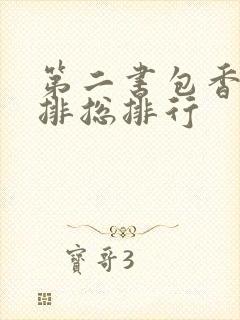 第二书包香
排总排行
寶哥3